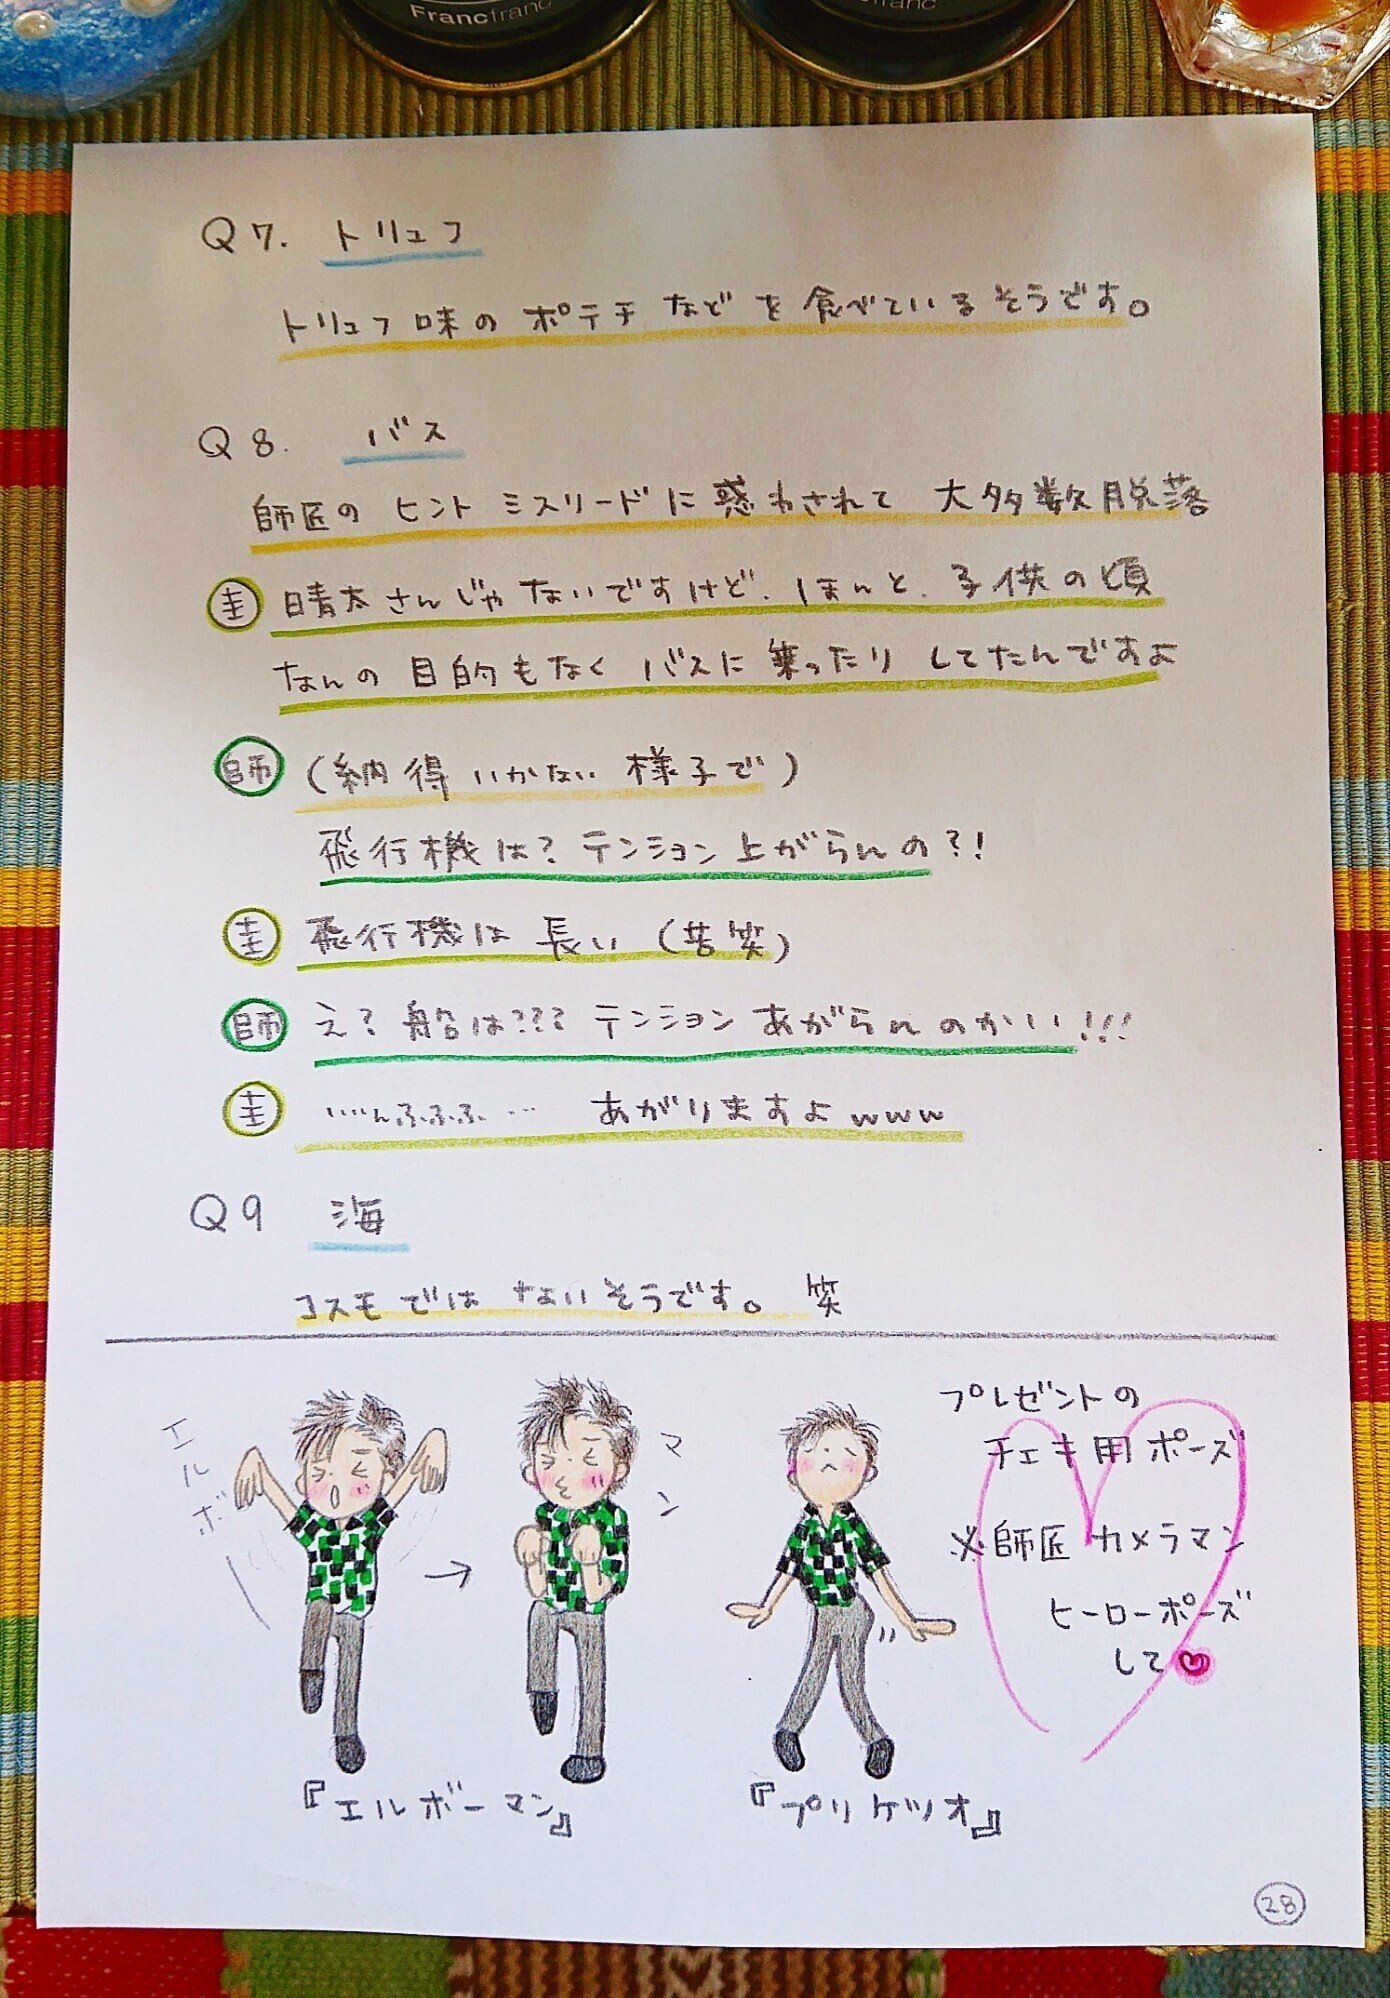 Francfranc
franc
Q7. トリュフ
トリュフ味のポテチなどを食べているそうです。
Q8. バス
師匠のヒントミスリードに惑わされて大多数脱落
圭 晴太さんじゃないですけど、ほんと、子供の頃
なんの目的もなくバスに乗ったりしてたんですよ
師 (納得いかない様子で)
飛行機は?テンション上がらんの?!
圭 飛行機は長い(苦笑)
師 え?船は???テンションあがらんのかい!!!
圭 ……んふふふ… あがりますよwww
Q9 海
コスモではないそうです。笑
プレゼントの
チェキ用ポーズ
※師匠カメラマン
ヒーローポーズ
して
エルボ
マン
『エルボーマン』
『プリケツオ』
28